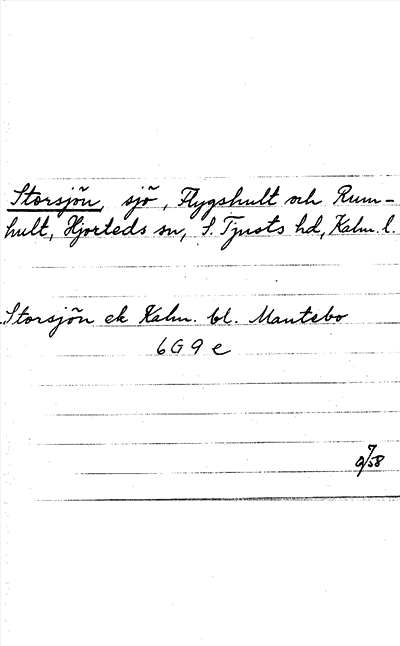 Storsjön, sjö, Flygshult och Rum-
hult, Hjorteds sn, S. Tjusts hd, Kalm. l.
Storsjön ek Kalm. bl. Mantebo
6G9e
7/58